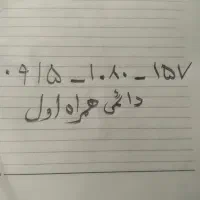 ۰۹۱۵-۱۰۸۰-۱۵۷
دائمی همراه اول